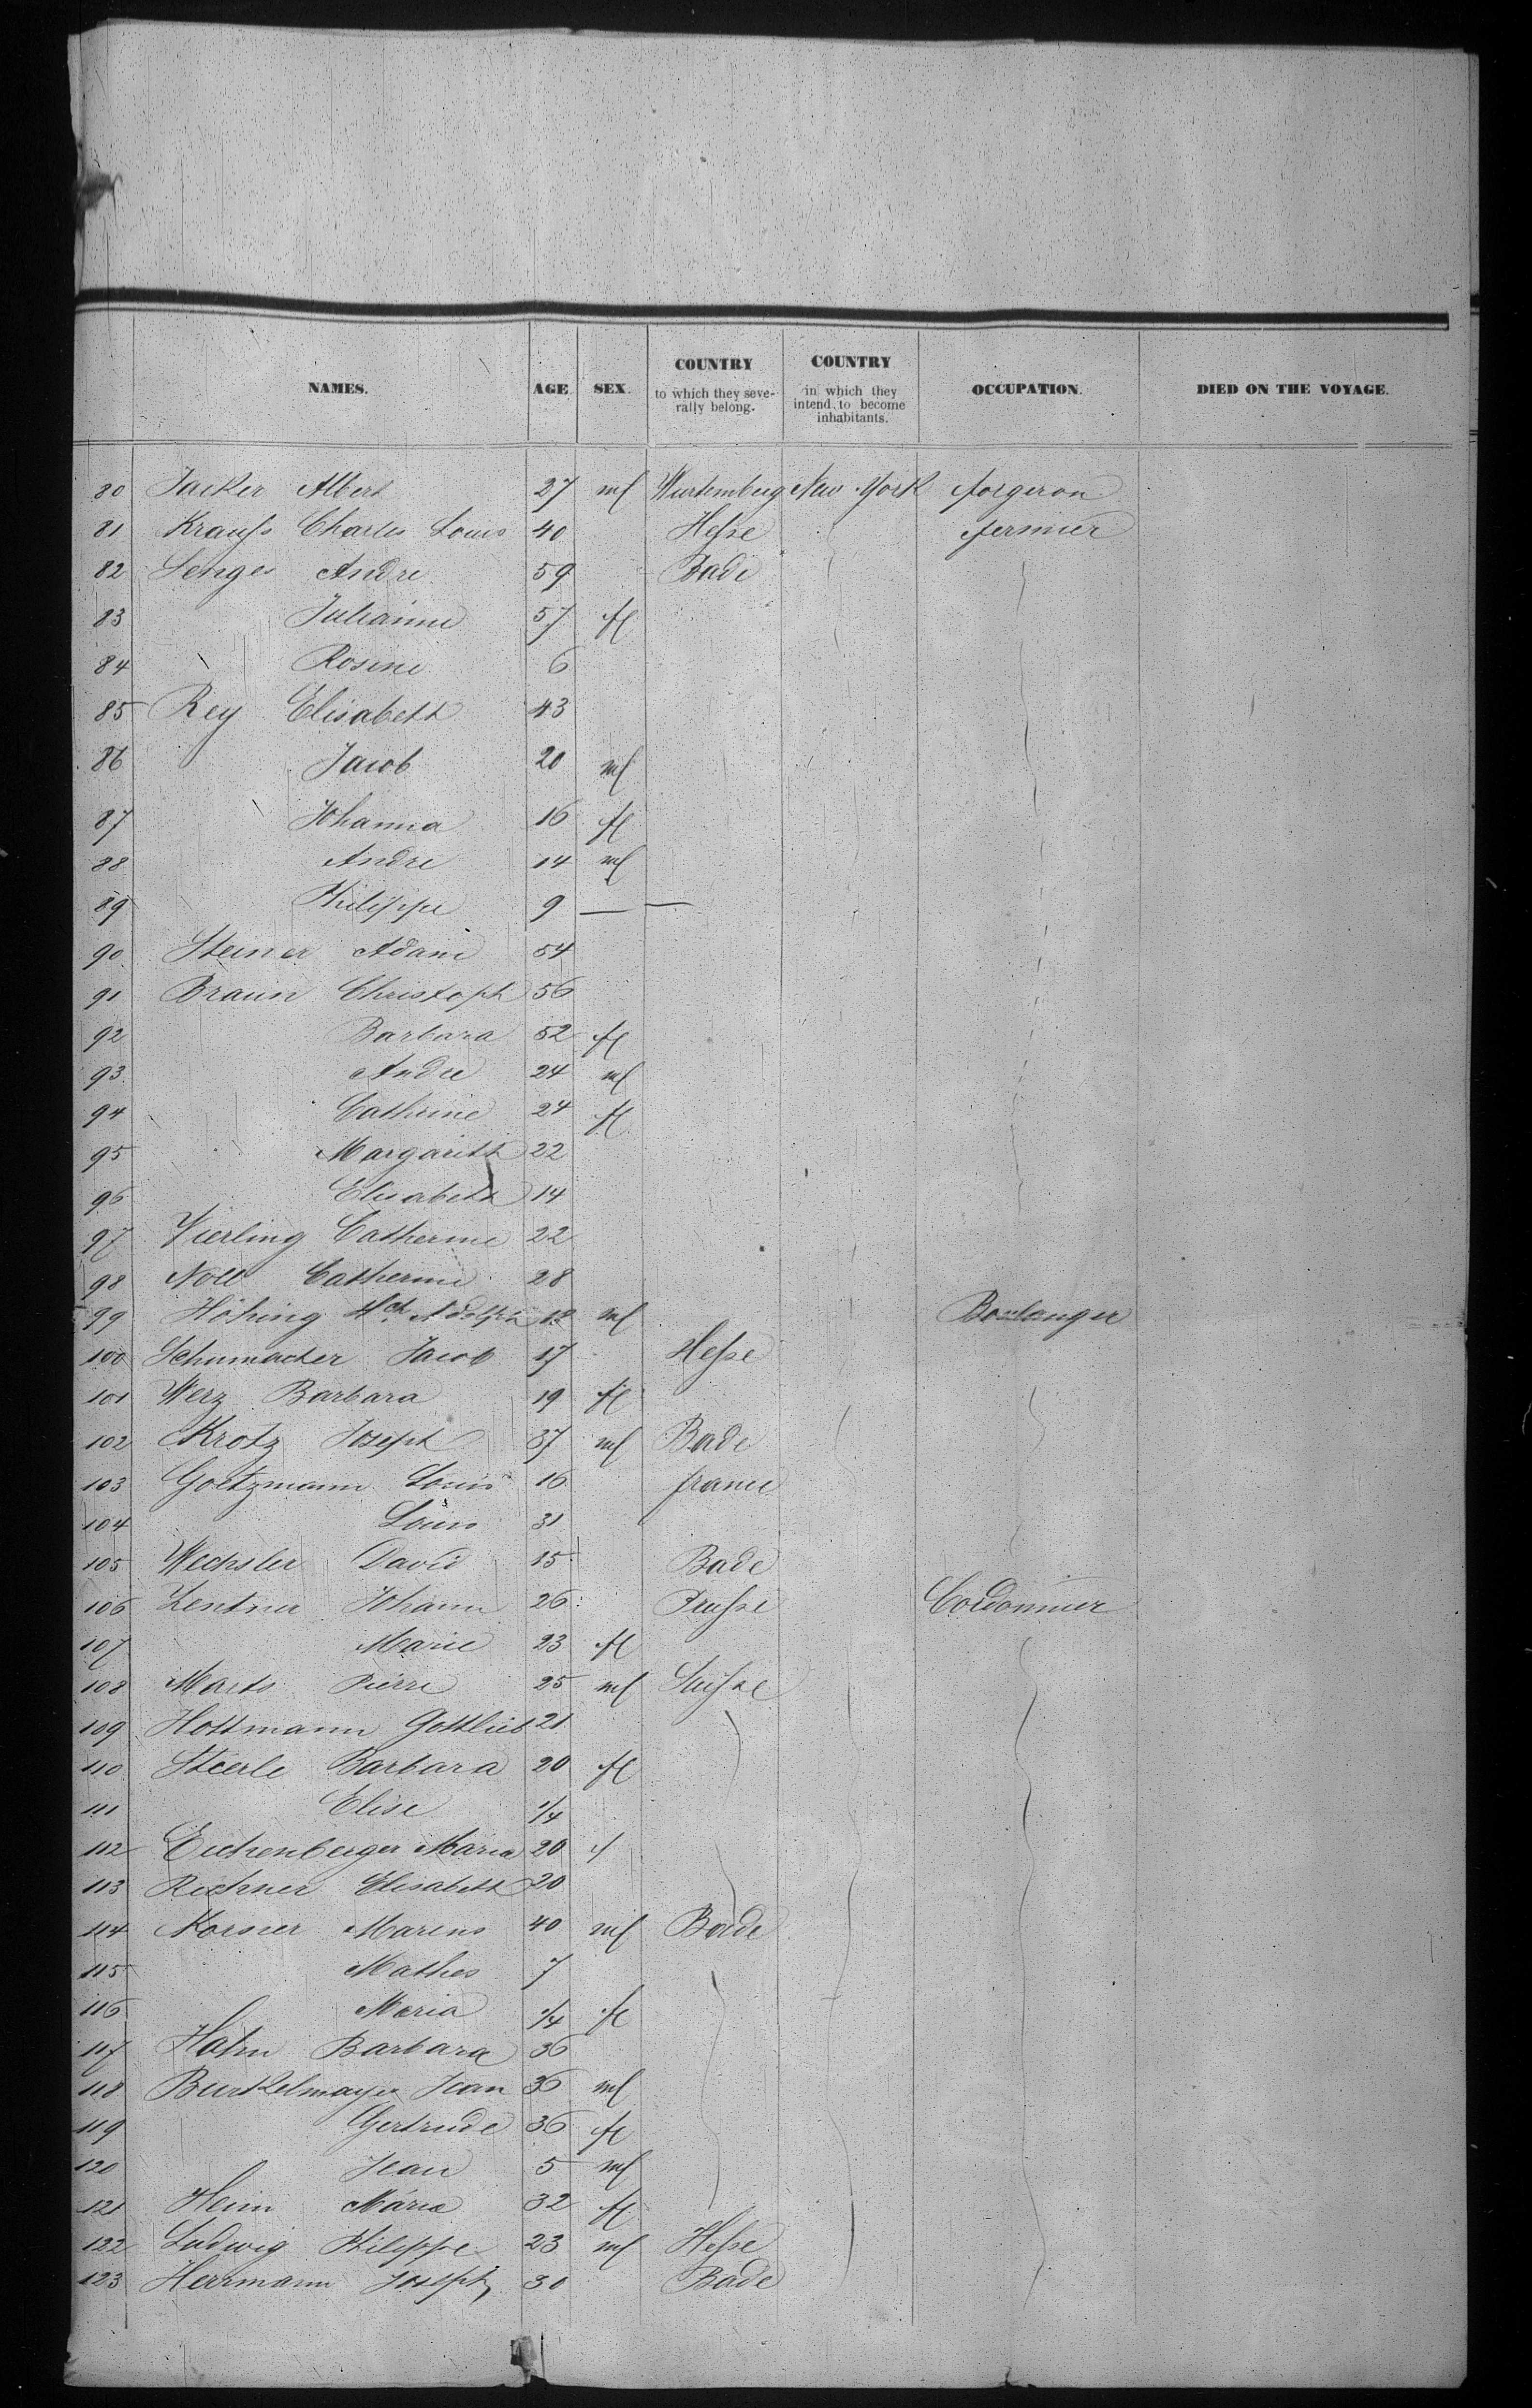 NAMES. AGE SEX. COUNTRY to which they seve-rally belong. COUNTRY in which they intend to become inhabitants. OCCUPATION. DIED ON THE VOYAGE.
80 Jacker Albert 27 ml Wurtemberg New York forgeron
81 Krauss Charles Louis 40 Hesse fermier
82 Senges Andre 59 Bade
83 Julianne 57 fl
84 Rosine 6
85 Rey Elisabeth 43
86 Jacob 20 ml
87 Johanna 16 fl
88 Andre 14 ml
89 Philippe 9 — —
90 Steiner Adam 54
91 Braun Christoph 56
92 Barbara 52 fl
93 Andre 24 ml
94 Catherine 24 fl
95 Margarith 22
96 Elisabeth 14
97 Vierling Catherine 22
98 Noll Catherine 28
99 Höhing Hch Adolph 18 ml Boulanger
100 Schumacher Jacob 17 Hesse
101 Werz Barbara 19 fl
102 Krotz Joseph 37 ml Bade
103 Goetzmann Louis 16 france
104 Louis 31
105 Wechsler David 15 Bade
106 Zentner Johann 26 Prusse Cordonnier
107 Marie 23 fl
108 Marts Pierre 25 ml Suisse
109 Hottmann Gottlieb 21
110 Steerle Barbara 20 fl
111 Elise 1/4
112 Eichenberger Maria 20 f
113 Rechner Elisabeth 20
114 Korner Marcus 40 ml Bade
115 Mathes 7
116 Maria 1/4 fl
117 Hahn Barbara 36
118 Burkelmayer Jean 36 ml
119 Gertrude 36 fl
120 Jean 5 ml
121 Heim Maria 32 fl
122 Ludwig Philippe 23 ml Hesse
123 Herrmann Joseph 30 Bade